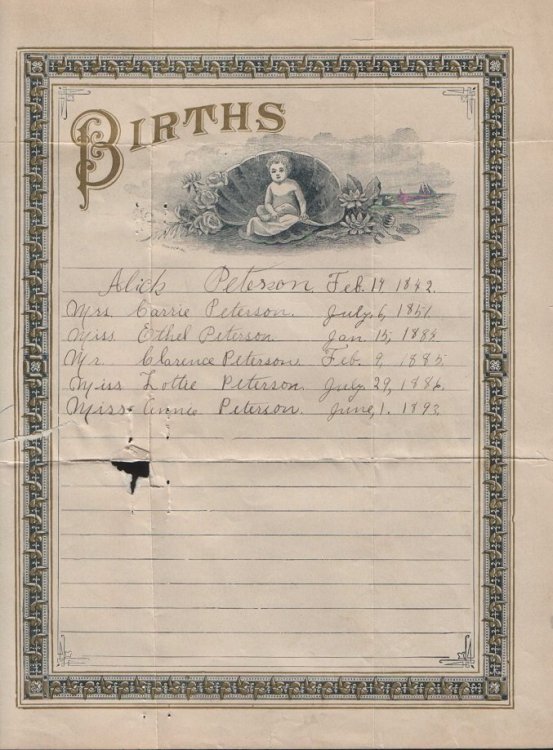 BIRTHS
Alick Peterson. Feb. 19 1842.
Mrs. Carrie Peterson. July, 6, 1851.
Miss Ethel Peterson Jan. 15, 1883.
Mr. Clarence Peterson. Feb. 9, 1885.
Miss Lottie Peterson. July 29, 1886.
Miss Annie Peterson. June, 1. 1893.